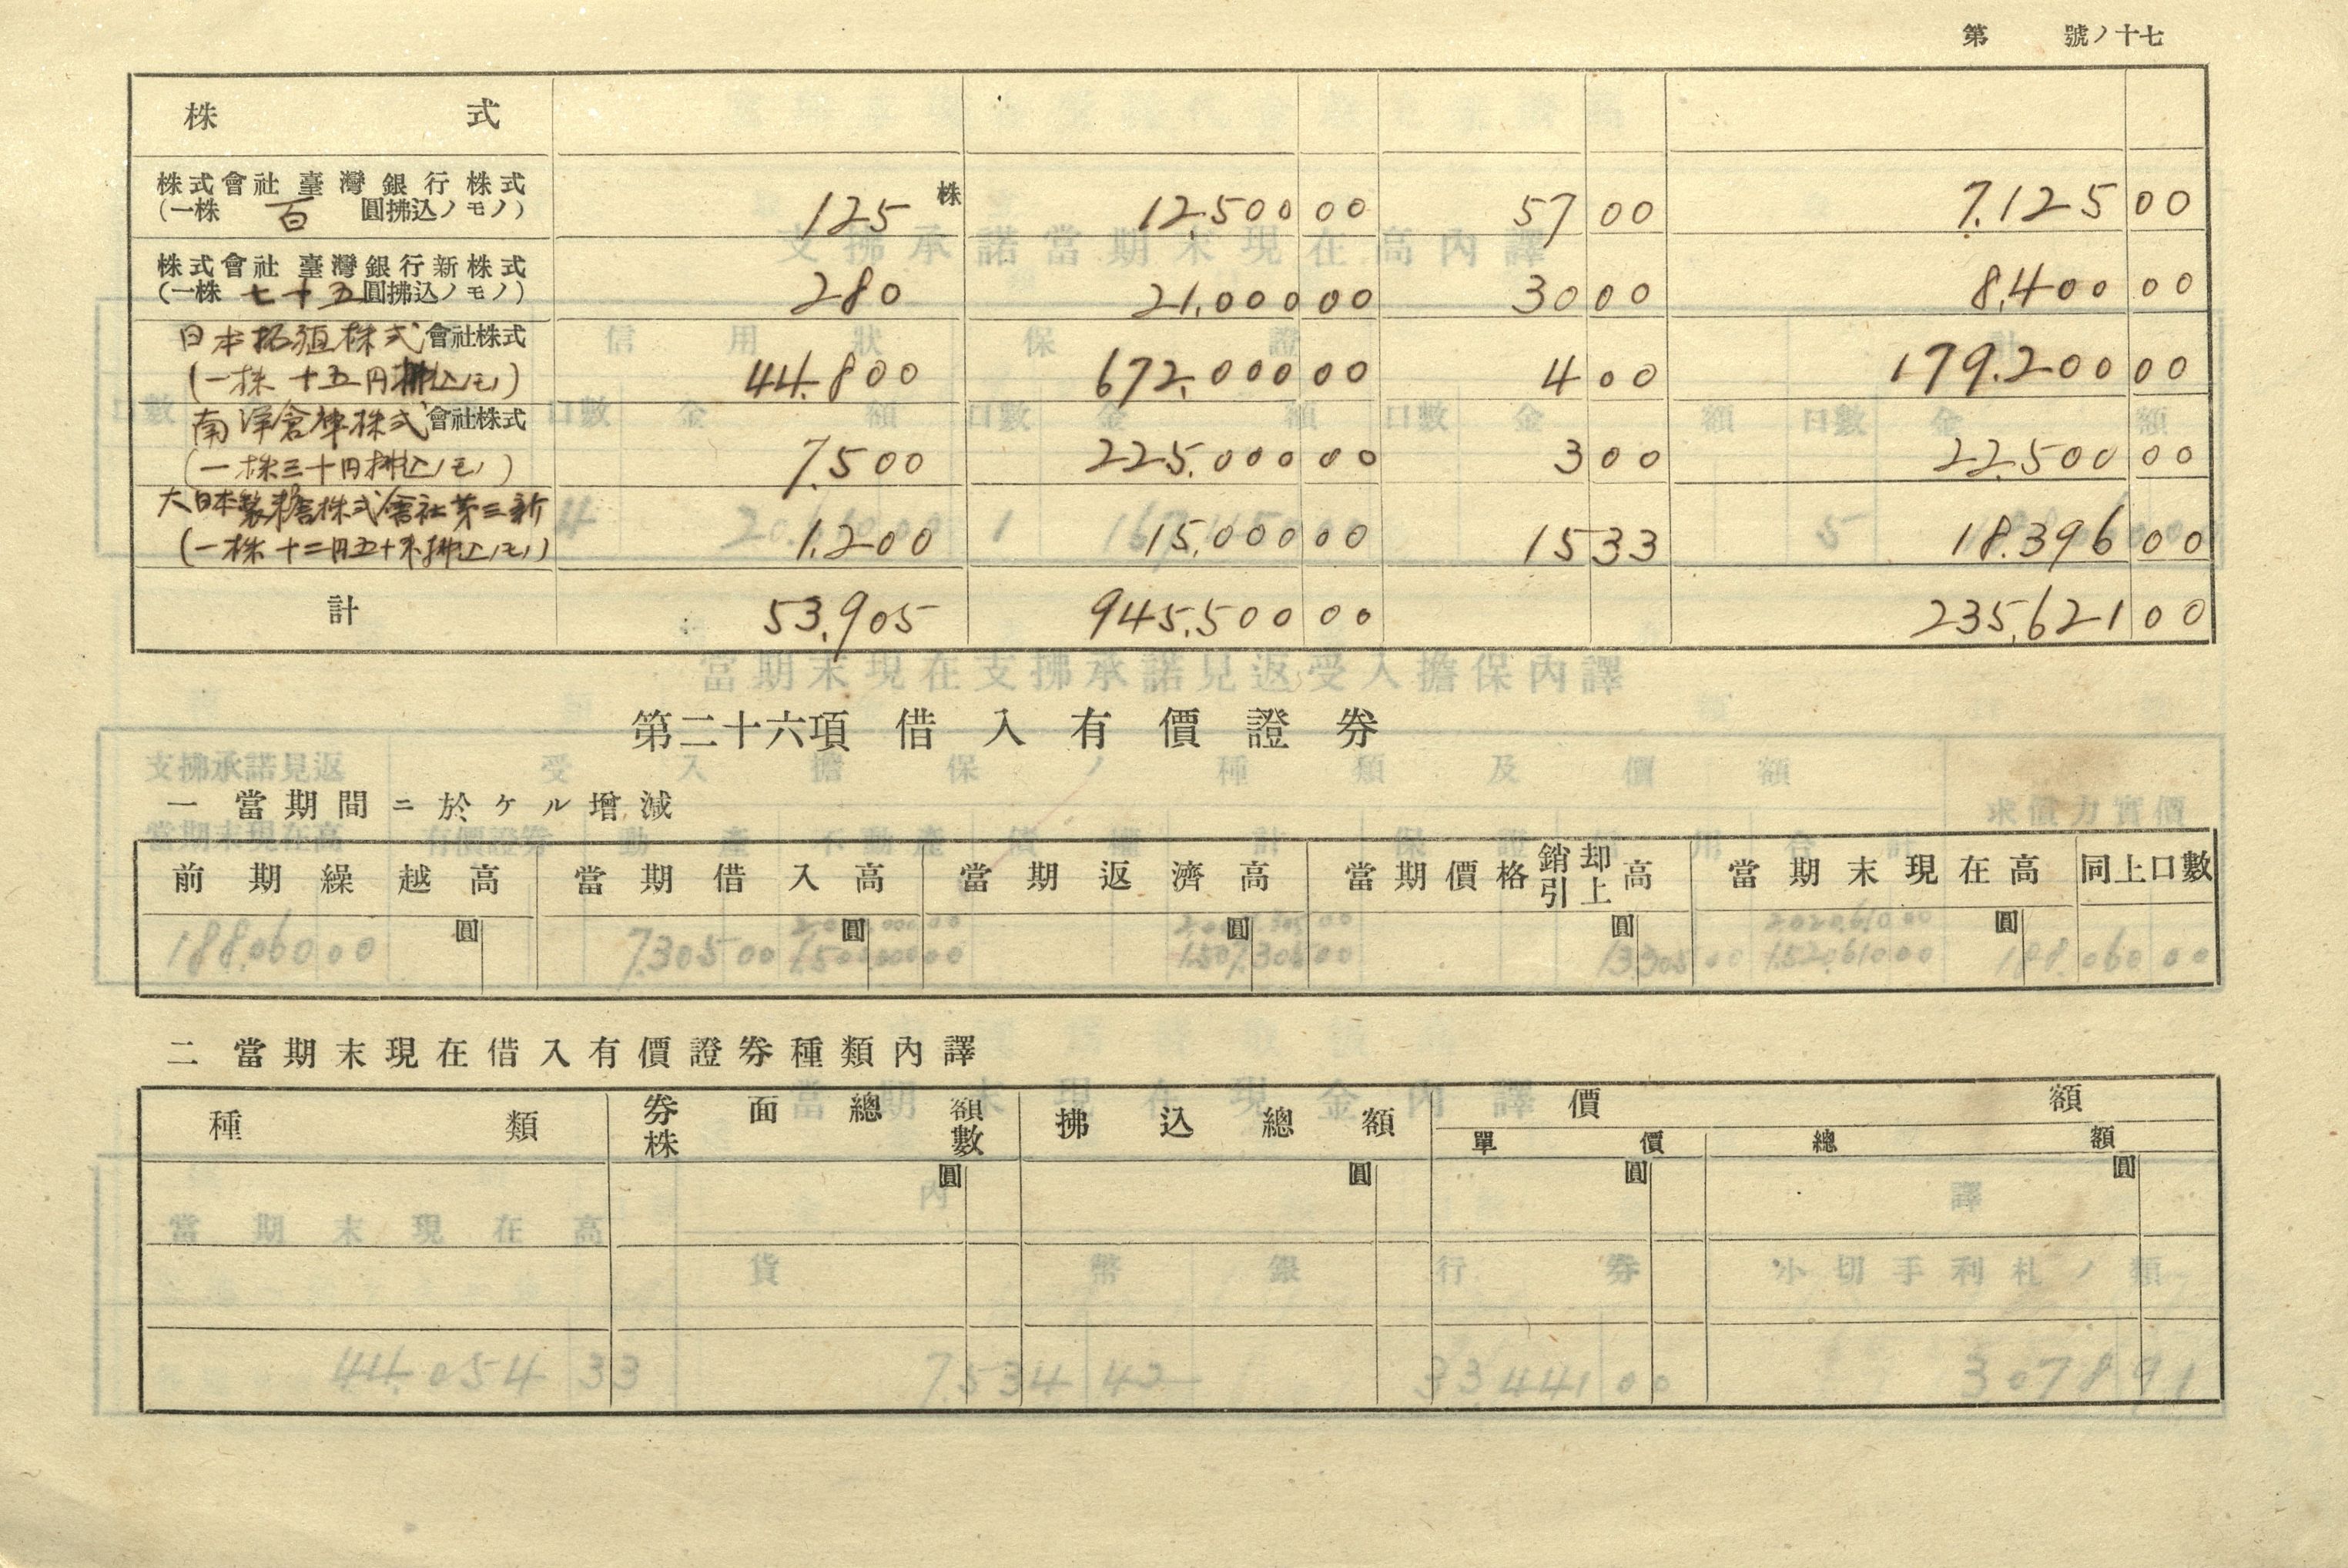 第 號ノ十七
株式
株式會社臺灣銀行株式
(一株 百 圓拂込ノモノ) 125 株 12.500 00 57 00 7.125 00
株式會社臺灣銀行新株式
(一株 七十五 圓拂込ノモノ) 280 21.000 00 30 00 8.400 00
日本拓殖株式會社株式
(一株 十五円拂込ノモノ) 44.800 672.000 00 4 00 179.200 00
南洋倉庫株式會社株式
(一株三十円拂込ノモノ) 7.500 225.000 00 3 00 22.500 00
大日本製糖株式會社第三新
(一株十二円五十末拂込ノモノ) 1.200 15.000 00 15 33 18.396 00
計 53.905 945.500 00 235.621 00
第二十六項 借入有價證券
一 當期間ニ於ケル增減
前期繰越高 當期借入高 當期返濟高 當期價格銷却引上高 當期末現在高 同上口數
圓 圓 圓 圓 圓
二 當期末現在借入有價證券種類內譯
種類 券面總額 株數 拂込總額 價額
單價 總額
圓 圓 圓 圓